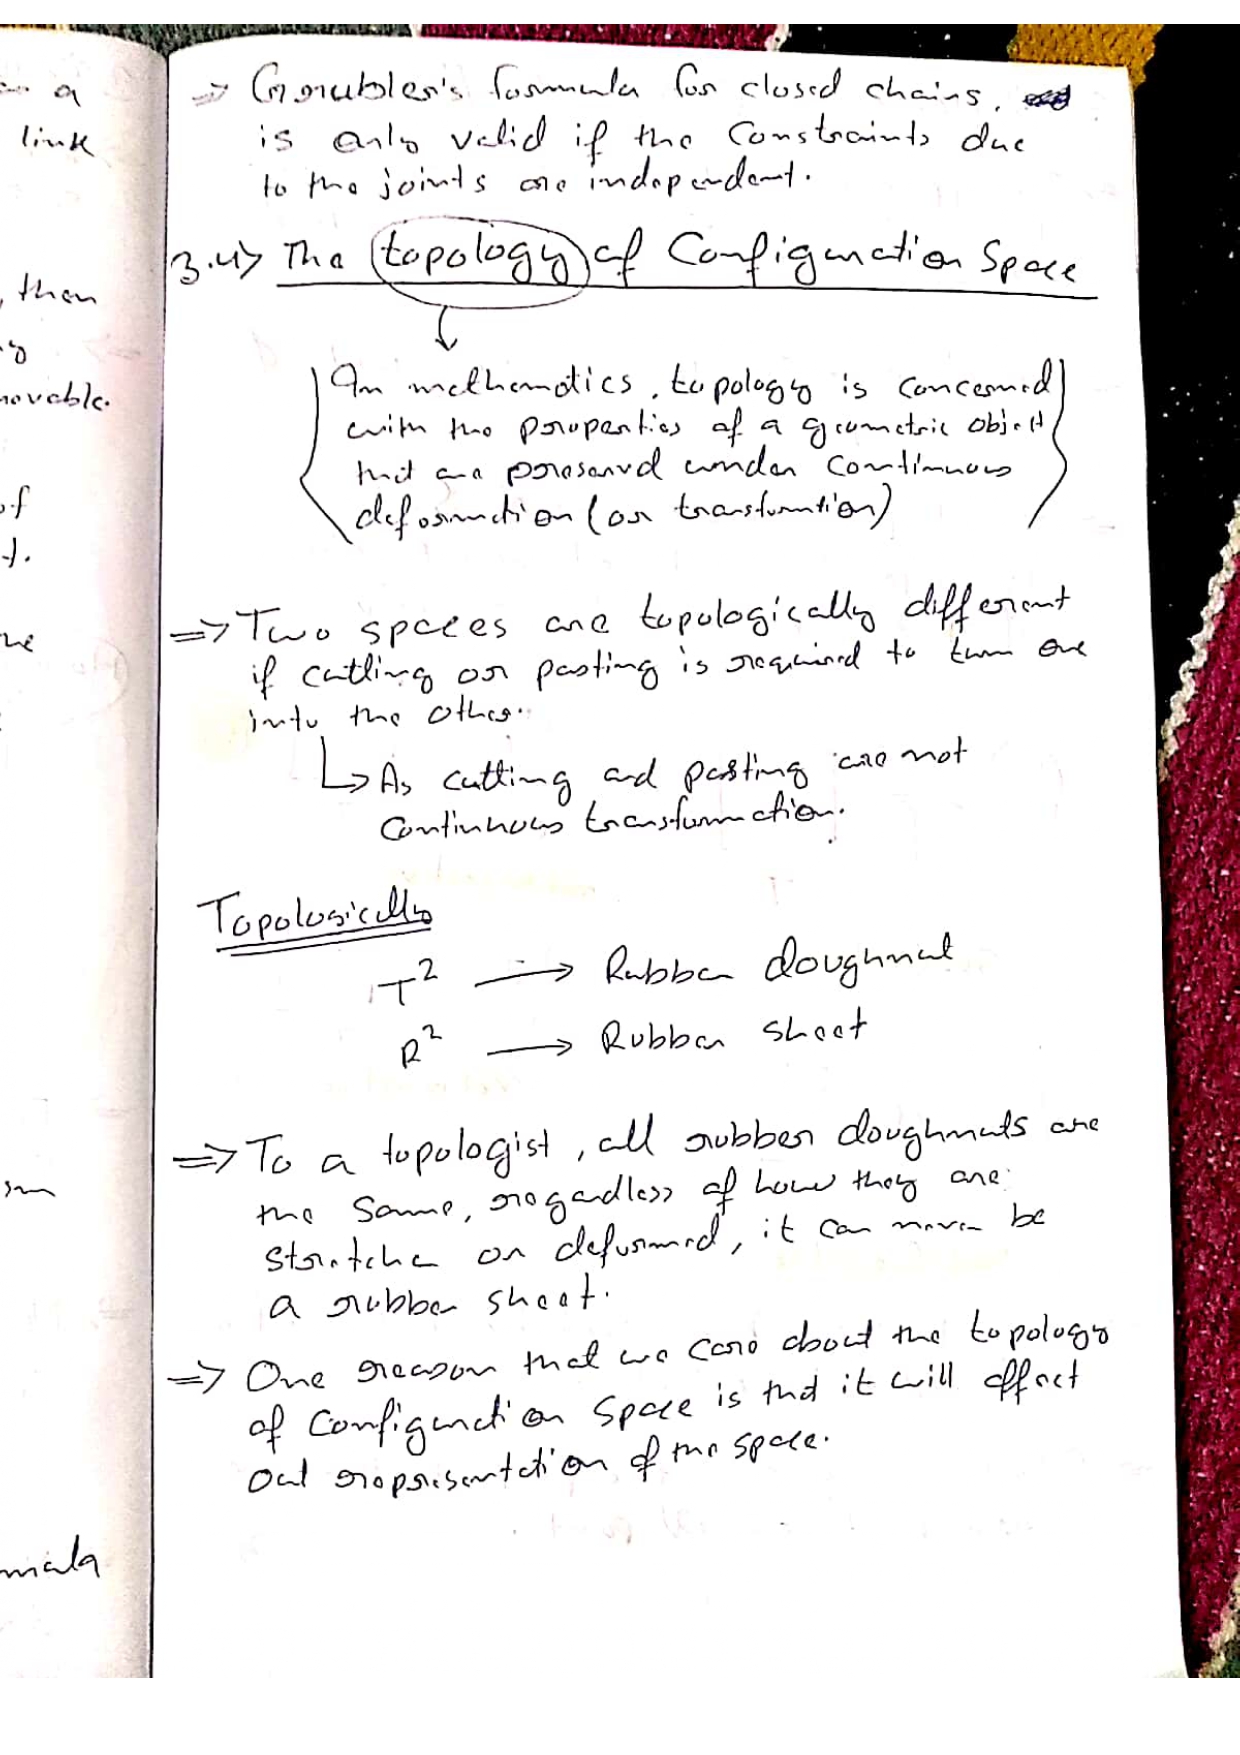 a
link
then
movable.
of
mula
⇒ Grubler's formula for closed chains,
is only valid if the constraints due
to the joints are independent.
3.4> The topology of Configuration Space
In mathematics, topology is concerned
with the properties of a geometric object
that are preserved under continuous
deformation (or transformtion)
⇒ Two spaces are topologically different
if cutting or pasting is required to turn one
into the other.
↳ As cutting and pasting are not
continuous transformation.
Topologically
T² → Rubber doughnut
R² → Rubber sheet
⇒ To a topologist, all rubber doughnuts are
the same, regardless of how they are
stretche or deformed, it can never be
a rubber sheet.
⇒ One reason that we care about the topology
of Configuration Space is that it will affect
out representation of the space.